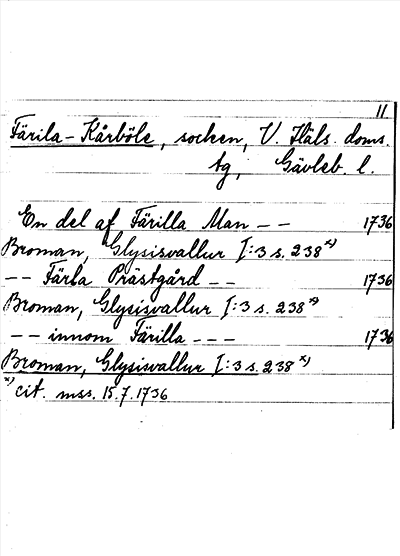 11
Färila-Kårböle, socken, V. Häls. doms.
tg, Gävleb. l.
En del af Färilla Man – – 1736
Broman, Glysisvallur I:3 s. 238 x)
– – Färla Prästgård – – 1736
Broman, Glysisvallur I:3 s. 238 x)
– – innom Färilla – – – 1736
Broman, Glysisvallur I:3 s. 238 x)
x) cit. mss. 15.7.1736